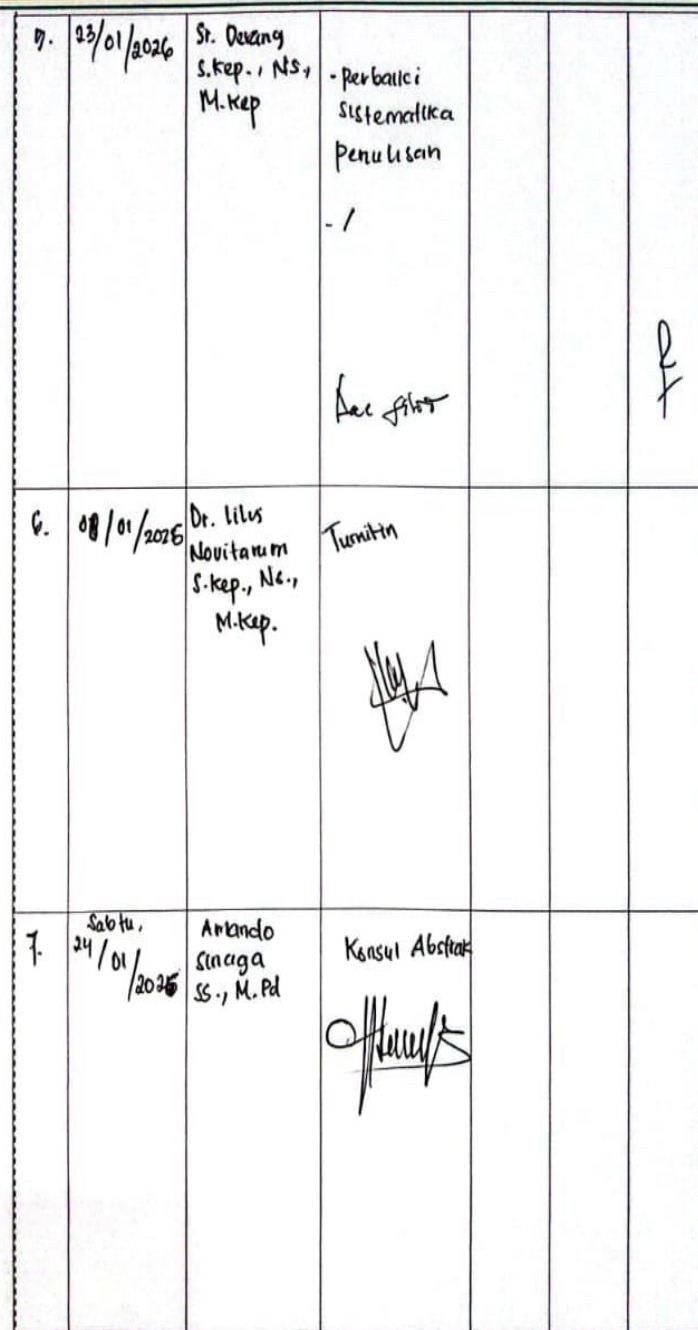 23/01/2026
Sr. Derang
S.Kep., NS,
M.Kep
- perbaiki
sistematika
penulisan
- /
6.
/01/2026
Dr. Lilis
Novitarum
S.Kep., Ns.,
M.Kep.
Turnitin
7.
Sabtu,
24/01/2026
Amando
Sinaga
SS., M.Pd
Konsul Abstrak